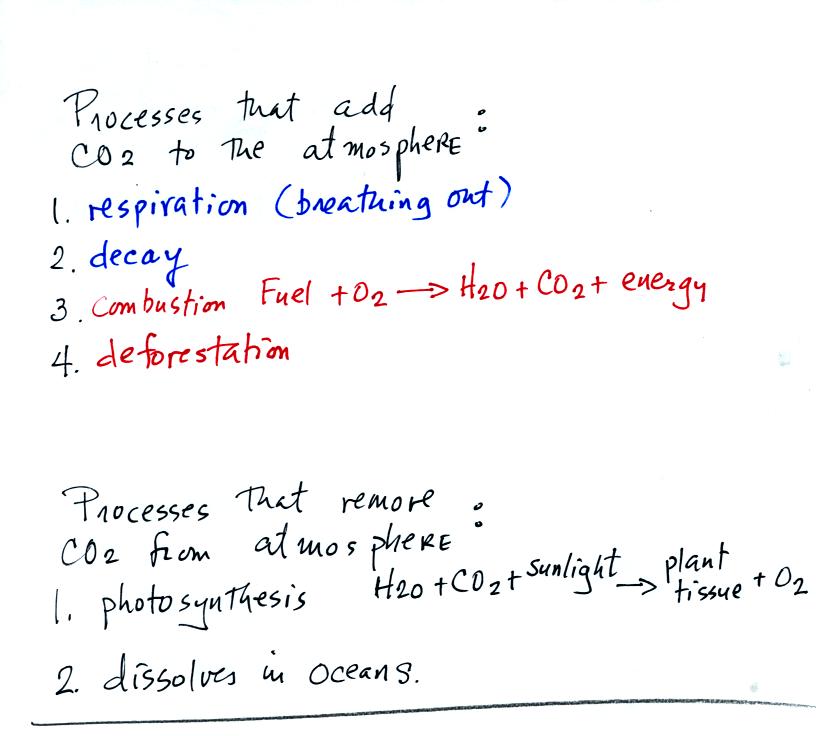 Processes that add
CO2 to the atmosphere :
1. respiration (breathing out)
2. decay
3. combustion Fuel + O2 → H2O + CO2 + energy
4. deforestation
Processes that remove
CO2 from atmosphere :
1. photosynthesis H2O + CO2 + sunlight → plant tissue + O2
2. dissolves in oceans.